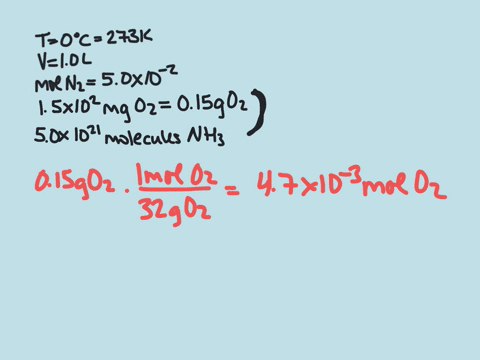 T=0°C=273K
V=1.0L
mol N₂=5.0x10⁻²
1.5x10² mg O₂=0.15g O₂
5.0x10²¹ molecules NH₃
0.15gO₂ · 1mol O₂/32gO₂ = 4.7x10⁻³ mol O₂